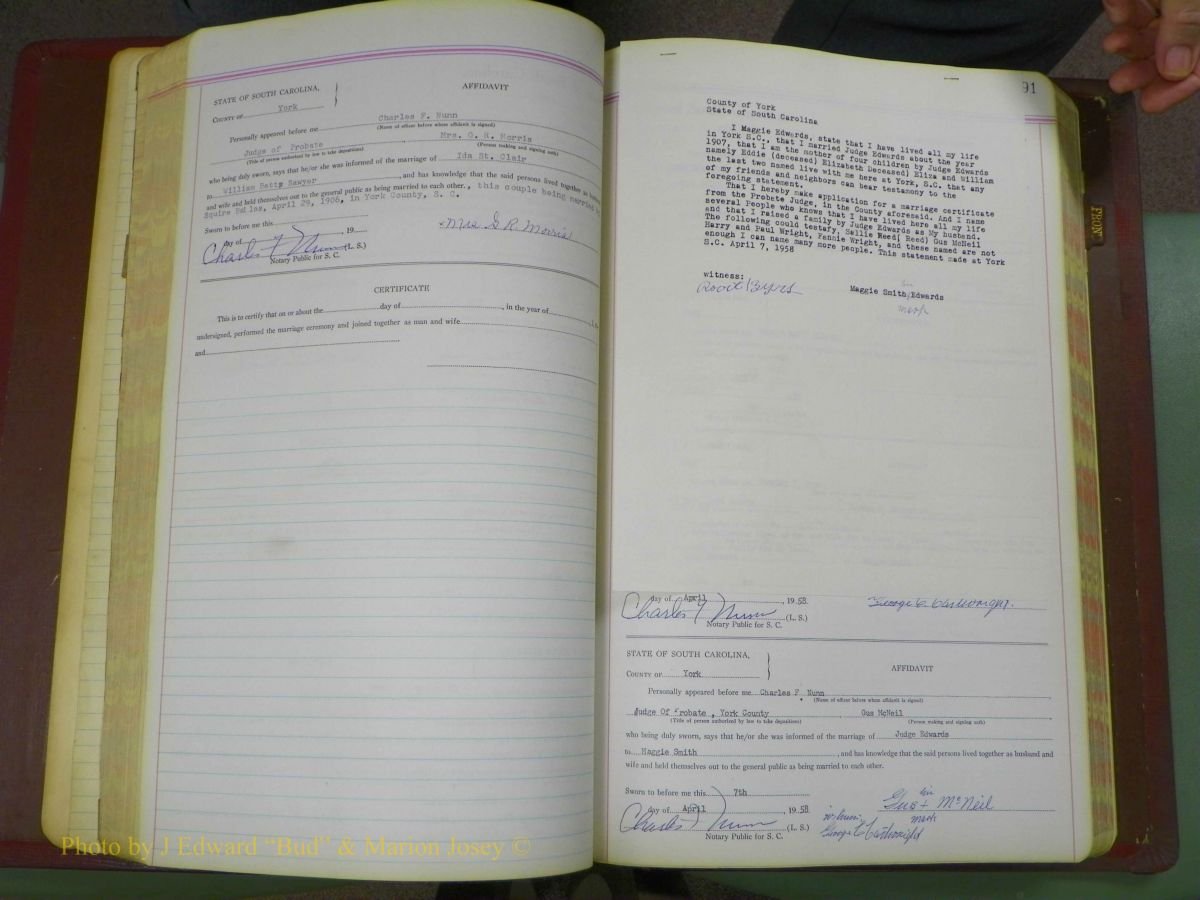 STATE OF SOUTH CAROLINA,
AFFIDAVIT
COUNTY OF York
Personally appeared before me Charles F. Nunn
(Name of officer before whom affidavit is signed)
Judge of Probate Mrs. G. R. Morris
(Title of person authorized by law to take depositions) (Person making and signing oath)
who being duly sworn, says that he/she was informed of the marriage of Ida St. Clair
to William Betts Sawyer, and has knowledge that the said persons lived together as
and wife and held themselves out to the general public as being married to each other., this couple being married by
Squire April 29, 1906, in York County, S. C.
Sworn to before me this , 19
day of Mrs G R Morris
Charles F Nunn (L. S.)
Notary Public for S. C.
CERTIFICATE
This is to certify that on or about the day of , in the year of
undersigned, performed the marriage ceremony and joined together as man and wife
and
91
County of York
State of South Carolina
I Maggie Edwards, state that I have lived all my life
in York S.C., that I married Judge Edwards about the year
1907, that I am the mother of four children by Judge Edwards
namely Eddie (deceased) Elizabeth Deceased) Eliza and William
the last two named live with me here at York, S.C. that any
of my friends and neighbors can bear testamony to the
foregoing statement.
That I hereby make application for a marriage certificate
from the Probate Judge, in the County aforesaid. And I name
several People who knows that I have lived here all my life
and that I raised a family by Judge Edwards as My husband.
The following could testafy, Sallie Reed( Reed) Gus McNeil
Harry and Paul Wright, Fannie Wright, and these named are not
enough I can name many more people. This statement made at York
S.C. April 7, 1958
witness:
Maggie Smith Edwards
mark
day of April , 1958
George C Cartwright.
Charles F Nunn (L. S.)
Notary Public for S. C.
STATE OF SOUTH CAROLINA,
AFFIDAVIT
COUNTY OF York
Personally appeared before me Charles F Nunn
(Name of officer before whom affidavit is signed)
Judge Of Probate , York County Gus McNeil
(Title of person authorized by law to take depositions) (Person making and signing oath)
who being duly sworn, says that he/she was informed of the marriage of Judge Edwards
to Maggie Smith , and has knowledge that the said persons lived together as husband and
wife and held themselves out to the general public as being married to each other.
Sworn to before me this 7th
his
day of April , 1958 Gus + McNeil
mark
Charles F Nunn (L. S.)
George C Cartwright
Notary Public for S. C.
Photo by J Edward "Bud" & Marion Josey ©